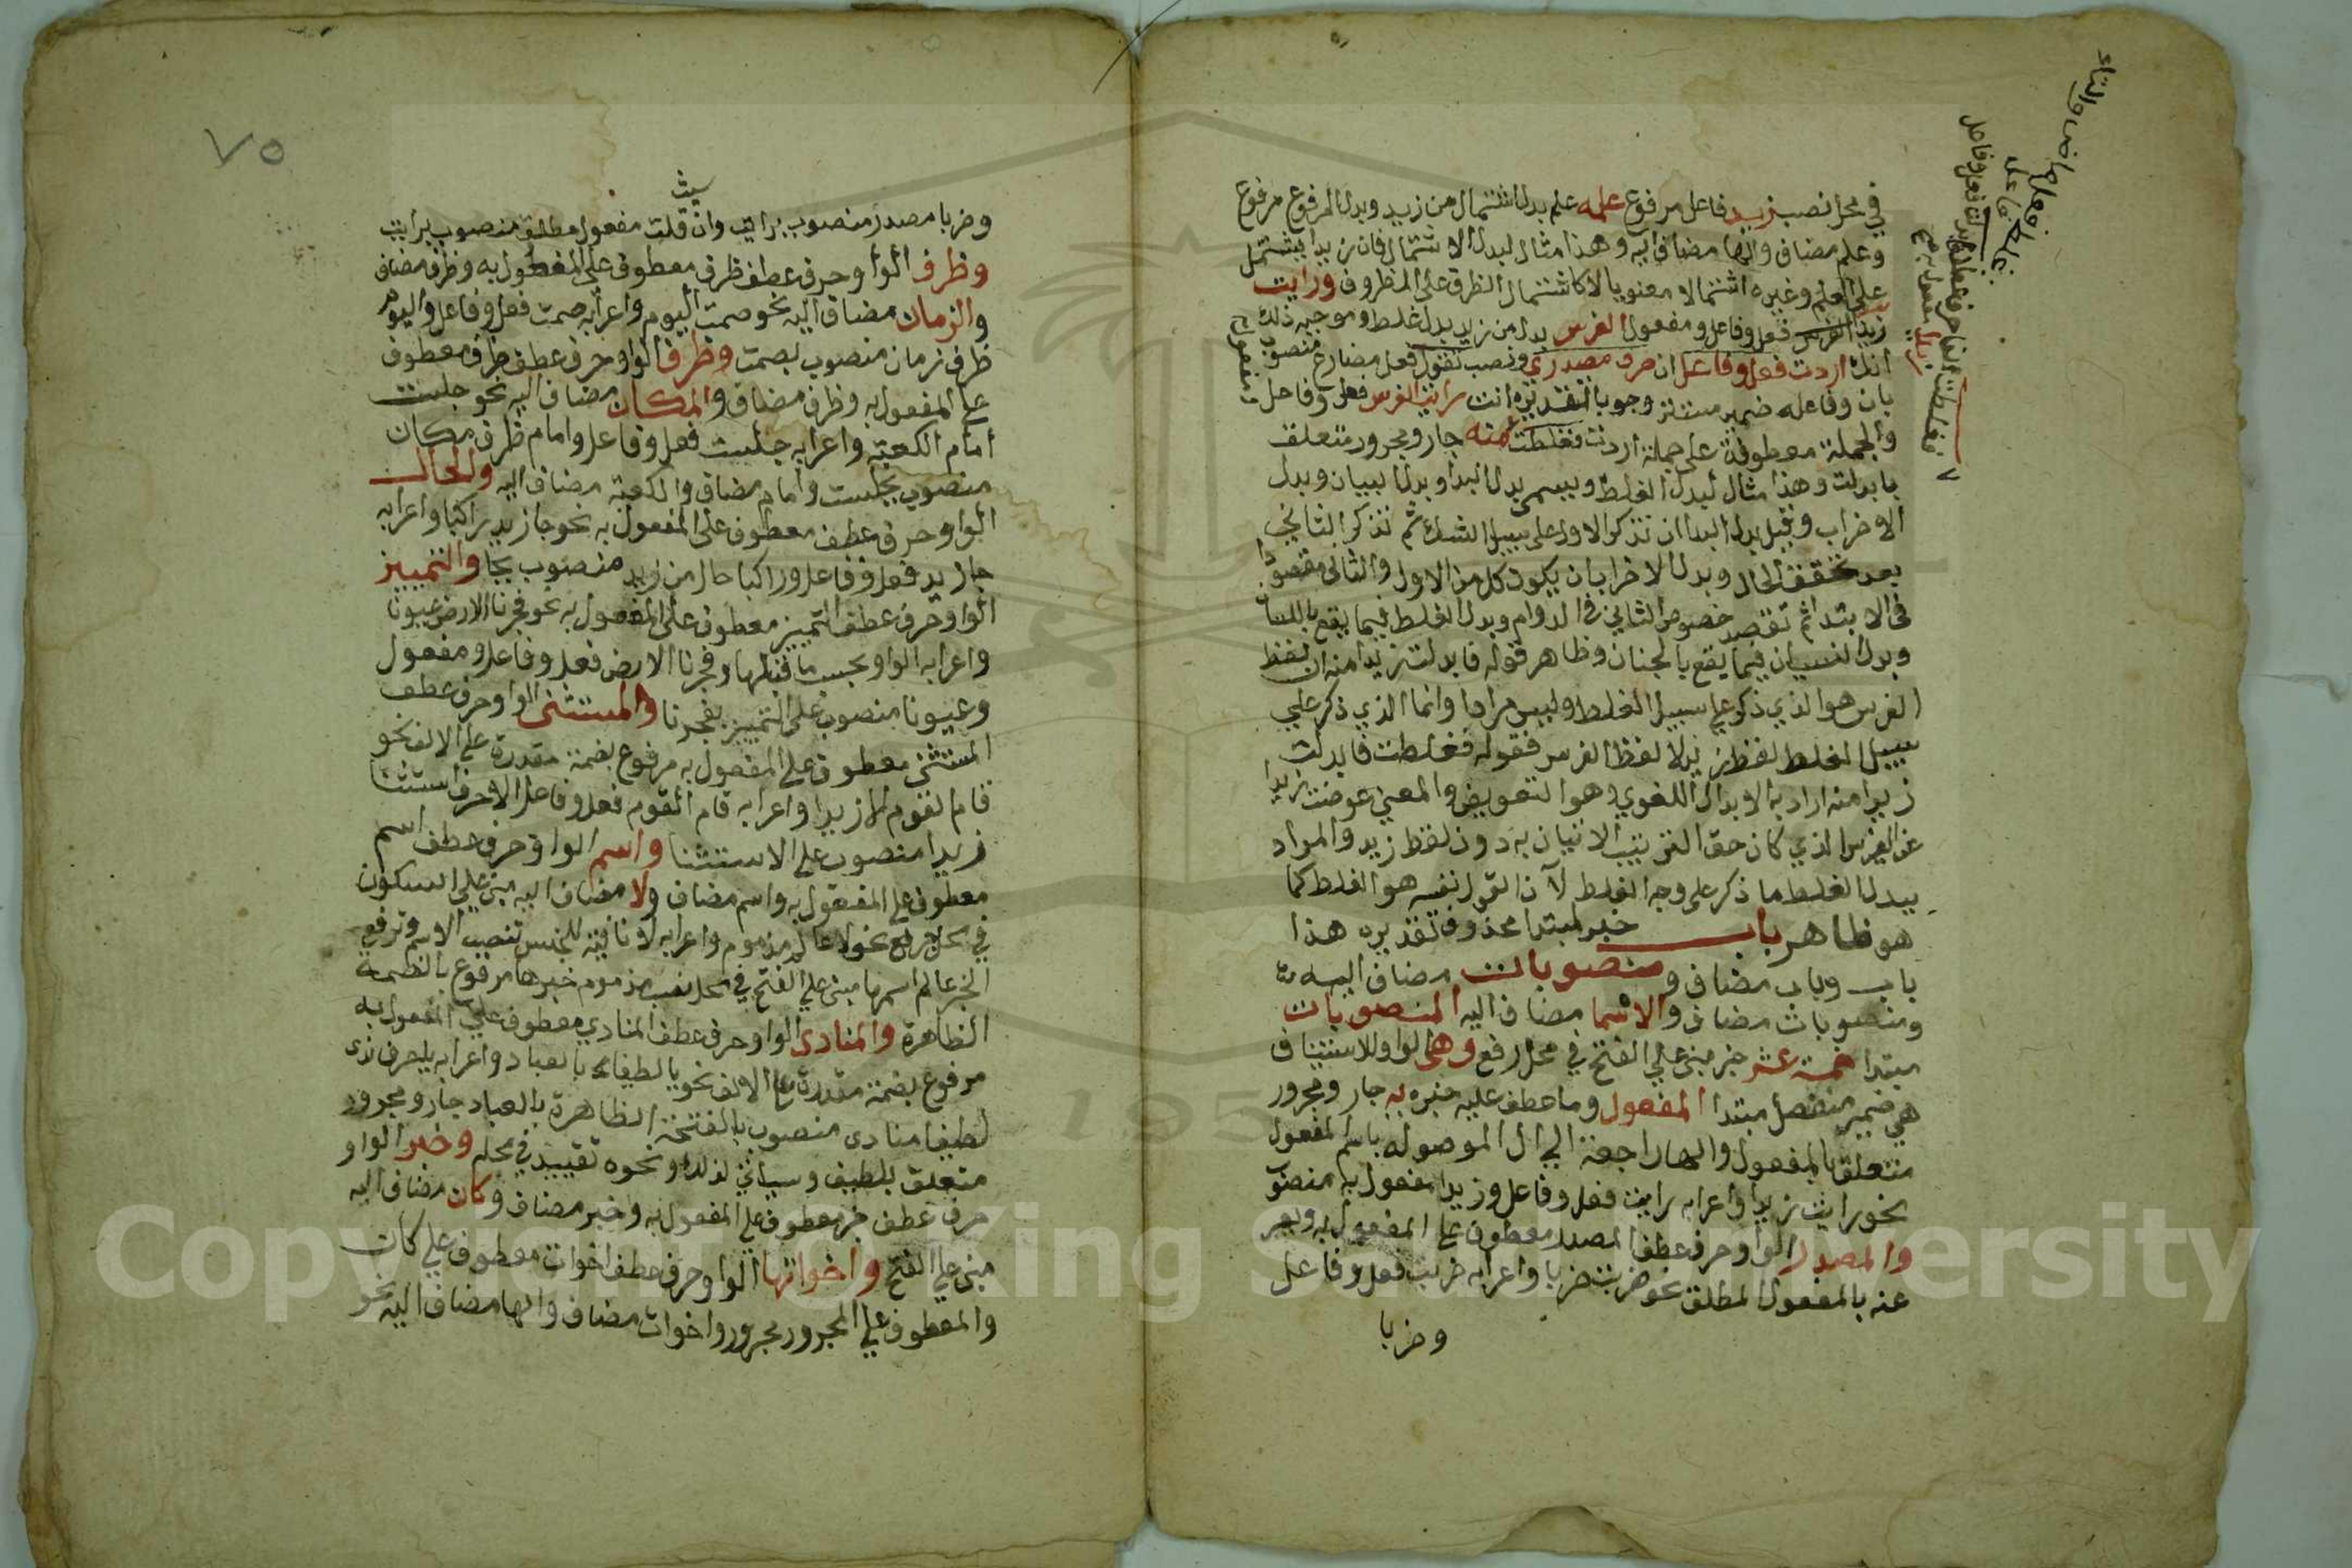 في محل نصب زيد فاعل مرفوع علمه علم بدل اشتمال من زيد وبدل المرفوع مرفوع
وعلم مضاف والها مضاف اليه وهذا مثال لبدل الاشتمال فان زيدا يشتمل
على العلم وغيره اشتمالا معنويا لا كاشتمال الظرف على المظروف ورايت
زيدا الفرس فعل وفاعل ومفعول الفرس بدل من زيد بدل غلط وموجبه ذلك
انك اردت فعل وفاعل ان حرف مصدري ونصب تقول فعل مضارع منصوب
بان وفاعله ضمير مستتر وجوبا تقديره انت رايت الفرس فعل وفاعل ومفعول
والجملة معطوفة على جملة اردت فغلطت منه جار ومجرور متعلق
بابدلت وهذا مثال لبدل الغلط ويسمى بدل البدا وبدل النسيان وبدل
الاضراب وقيل بدل البدا ان تذكر الاول على سبيل الشك ثم تذكر الثاني
بعد تحقق الحال وبدل الاضراب بان يكون كل من الاول والثاني مقصودا
في الابتدا ثم تقصد خصوص الثاني في الدوام وبدل الغلط فيما يقع باللسان
وبدل النسيان فيما يقع بالجنان وظاهر قوله فابدلت زيدا منه ان لفظ
الفرس هو الذي ذكر على سبيل الغلط وليس مرادا وانما الذي ذكر على
سبيل الغلط لفظ زيد لا لفظ الفرس فقوله فغلطت فابدلت
زيدا منه اراد به الابدال اللغوي وهو التعويض والمعنى عوضت زيدا
عن الفرس الذي كان حق التركيب الاتيان به دون لفظ زيد والمراد
ببدل الغلط ما ذكر على وجه الغلط لا ان القول نفسه هو الغلط كما
هو ظاهر باب خبر لمبتدا محذوف تقديره هذا
باب وباب مضاف ومنصوبات مضاف اليه
ومنصوبات مضاف والاسما مضاف اليه المنصوبات
مبتدا خمسة عشر خبر مبني على الفتح في محل رفع وهي الواو للاستيناف
هي ضمير منفصل مبتدا المفعول وما عطف عليه خبره به جار ومجرور
متعلق بالمفعول والها راجعة الى ال الموصوله باسم المفعول
نحو رايت زيدا واعرابه رايت فعل وفاعل وزيدا مفعول به منصوب
والمصدر الواو حرف عطف المصدر معطوف على المفعول به ويعبر
عنه بالمفعول المطلق نحو ضربت ضربا واعرابه ضربت فعل وفاعل
وضربا
فغلطت الفا حرف عطف
٧٥
وضربا مصدر منصوب برايت وان قلت مفعول مطلق منصوب برايت
وظرف الواو حرف عطف ظرف معطوف على المفعول به وظرف مضاف
والزمان مضاف اليه نحو صمت اليوم واعرابه صمت فعل وفاعل واليوم
ظرف زمان منصوب بصمت وظرف الواو حرف عطف ظرف معطوف
على المفعول به وظرف مضاف والمكان مضاف اليه نحو جلست
امام الكعبة واعرابه جلست فعل وفاعل وامام ظرف مكان
منصوب بجلست وامام مضاف والكعبة مضاف اليه والحال
الواو حرف عطف معطوف على المفعول به نحو جا زيد راكبا واعرابه
جا زيد فعل وفاعل وراكبا حال من زيد منصوب بجا والتمييز
الواو حرف عطف التمييز معطوف على المفعول به نحو فجرنا الارض عيونا
واعرابه الواو بحسب ما قبلها وفجرنا الارض فعل وفاعل ومفعول
وعيونا منصوب على التمييز بفجرنا والمستثنى الواو حرف عطف
المستثنى معطوف على المفعول به مرفوع بضمة مقدرة على الالف نحو
قام القوم الا زيدا واعرابه قام القوم فعل وفاعل الا حرف استثنا
زيدا منصوب على الاستثنا واسم الواو حرف عطف اسم
معطوف على المفعول به واسم مضاف ولا مضاف اليه مبني على السكون
في محل جر نحو لا عالم مذموم واعرابه لا نافية للجنس تنصب الاسم وترفع
الخبر عالم اسمها مبني على الفتح في محل نصب مذموم خبرها مرفوع بالضمة
الظاهرة والمنادى الواو حرف عطف المنادي معطوف على المفعول به
مرفوع بضمة مقدرة على الالف نحو يا لطيفا بالعباد واعرابه يا حرف ندا
لطيفا منادى منصوب بالفتحة الظاهرة بالعباد جار ومجرور
متعلق بلطيف وسياتي لذلك ونحوه تقييد في محله وخبر الواو
حرف عطف خبر معطوف على المفعول به وخبر مضاف وكان مضاف اليه
مبني على الفتح واخواتها الواو حرف عطف اخوات معطوف على كان
والمعطوف على المجرور مجرور واخوات مضاف والها مضاف اليه نحو
Copyright © King Saud University
195